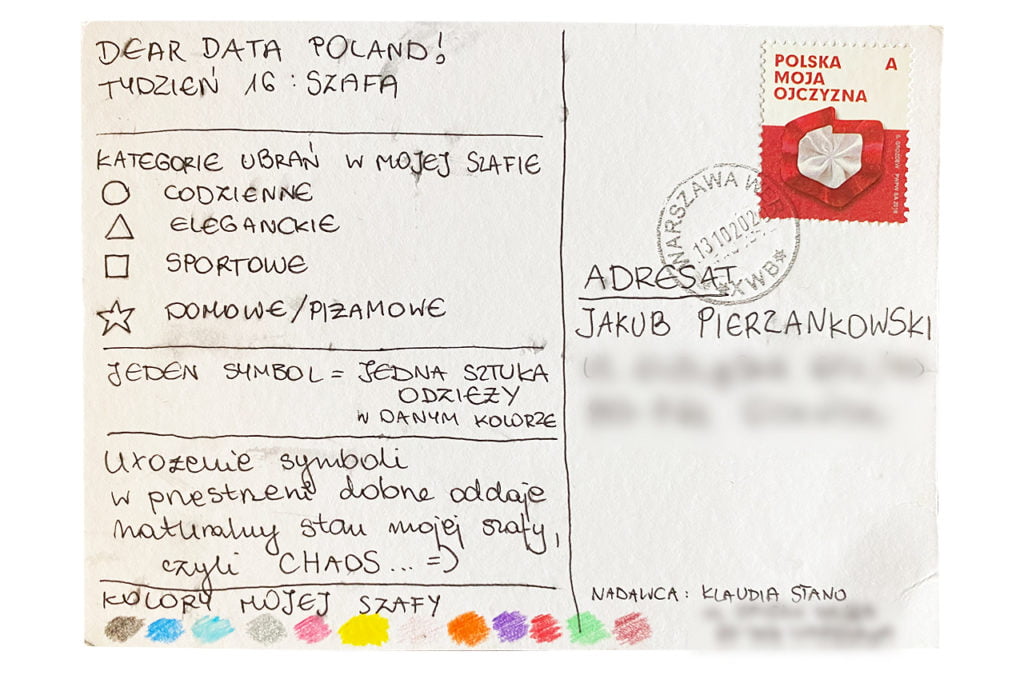 DEAR DATA POLAND!
TYDZIEŃ 16 : SZAFA
KATEGORIE UBRAŃ W MOJEJ SZAFIE
CODZIENNE
ELEGANCKIE
SPORTOWE
DOMOWE/PIŻAMOWE
JEDEN SYMBOL = JEDNA SZTUKA
ODZIEŻY
W DANYM KOLORZE
Ułożenie symboli
w przestrzeni dobrze oddaje
naturalny stan mojej szafy,
czyli CHAOS... =)
KOLORY MOJEJ SZAFY
POLSKA A
MOJA
OJCZYZNA
WARSZAWA
13102020
XWB
ADRESAT
JAKUB PIERZANKOWSKI
NADAWCA: KLAUDIA STANO